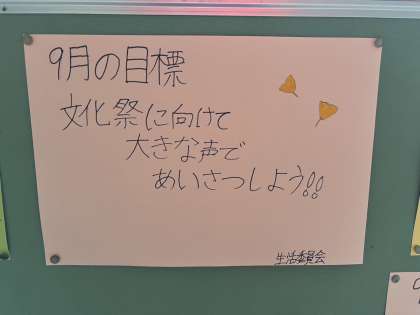 9月の目標
文化祭に向けて
大きな声で
めいさつしよう!!
生活委員会